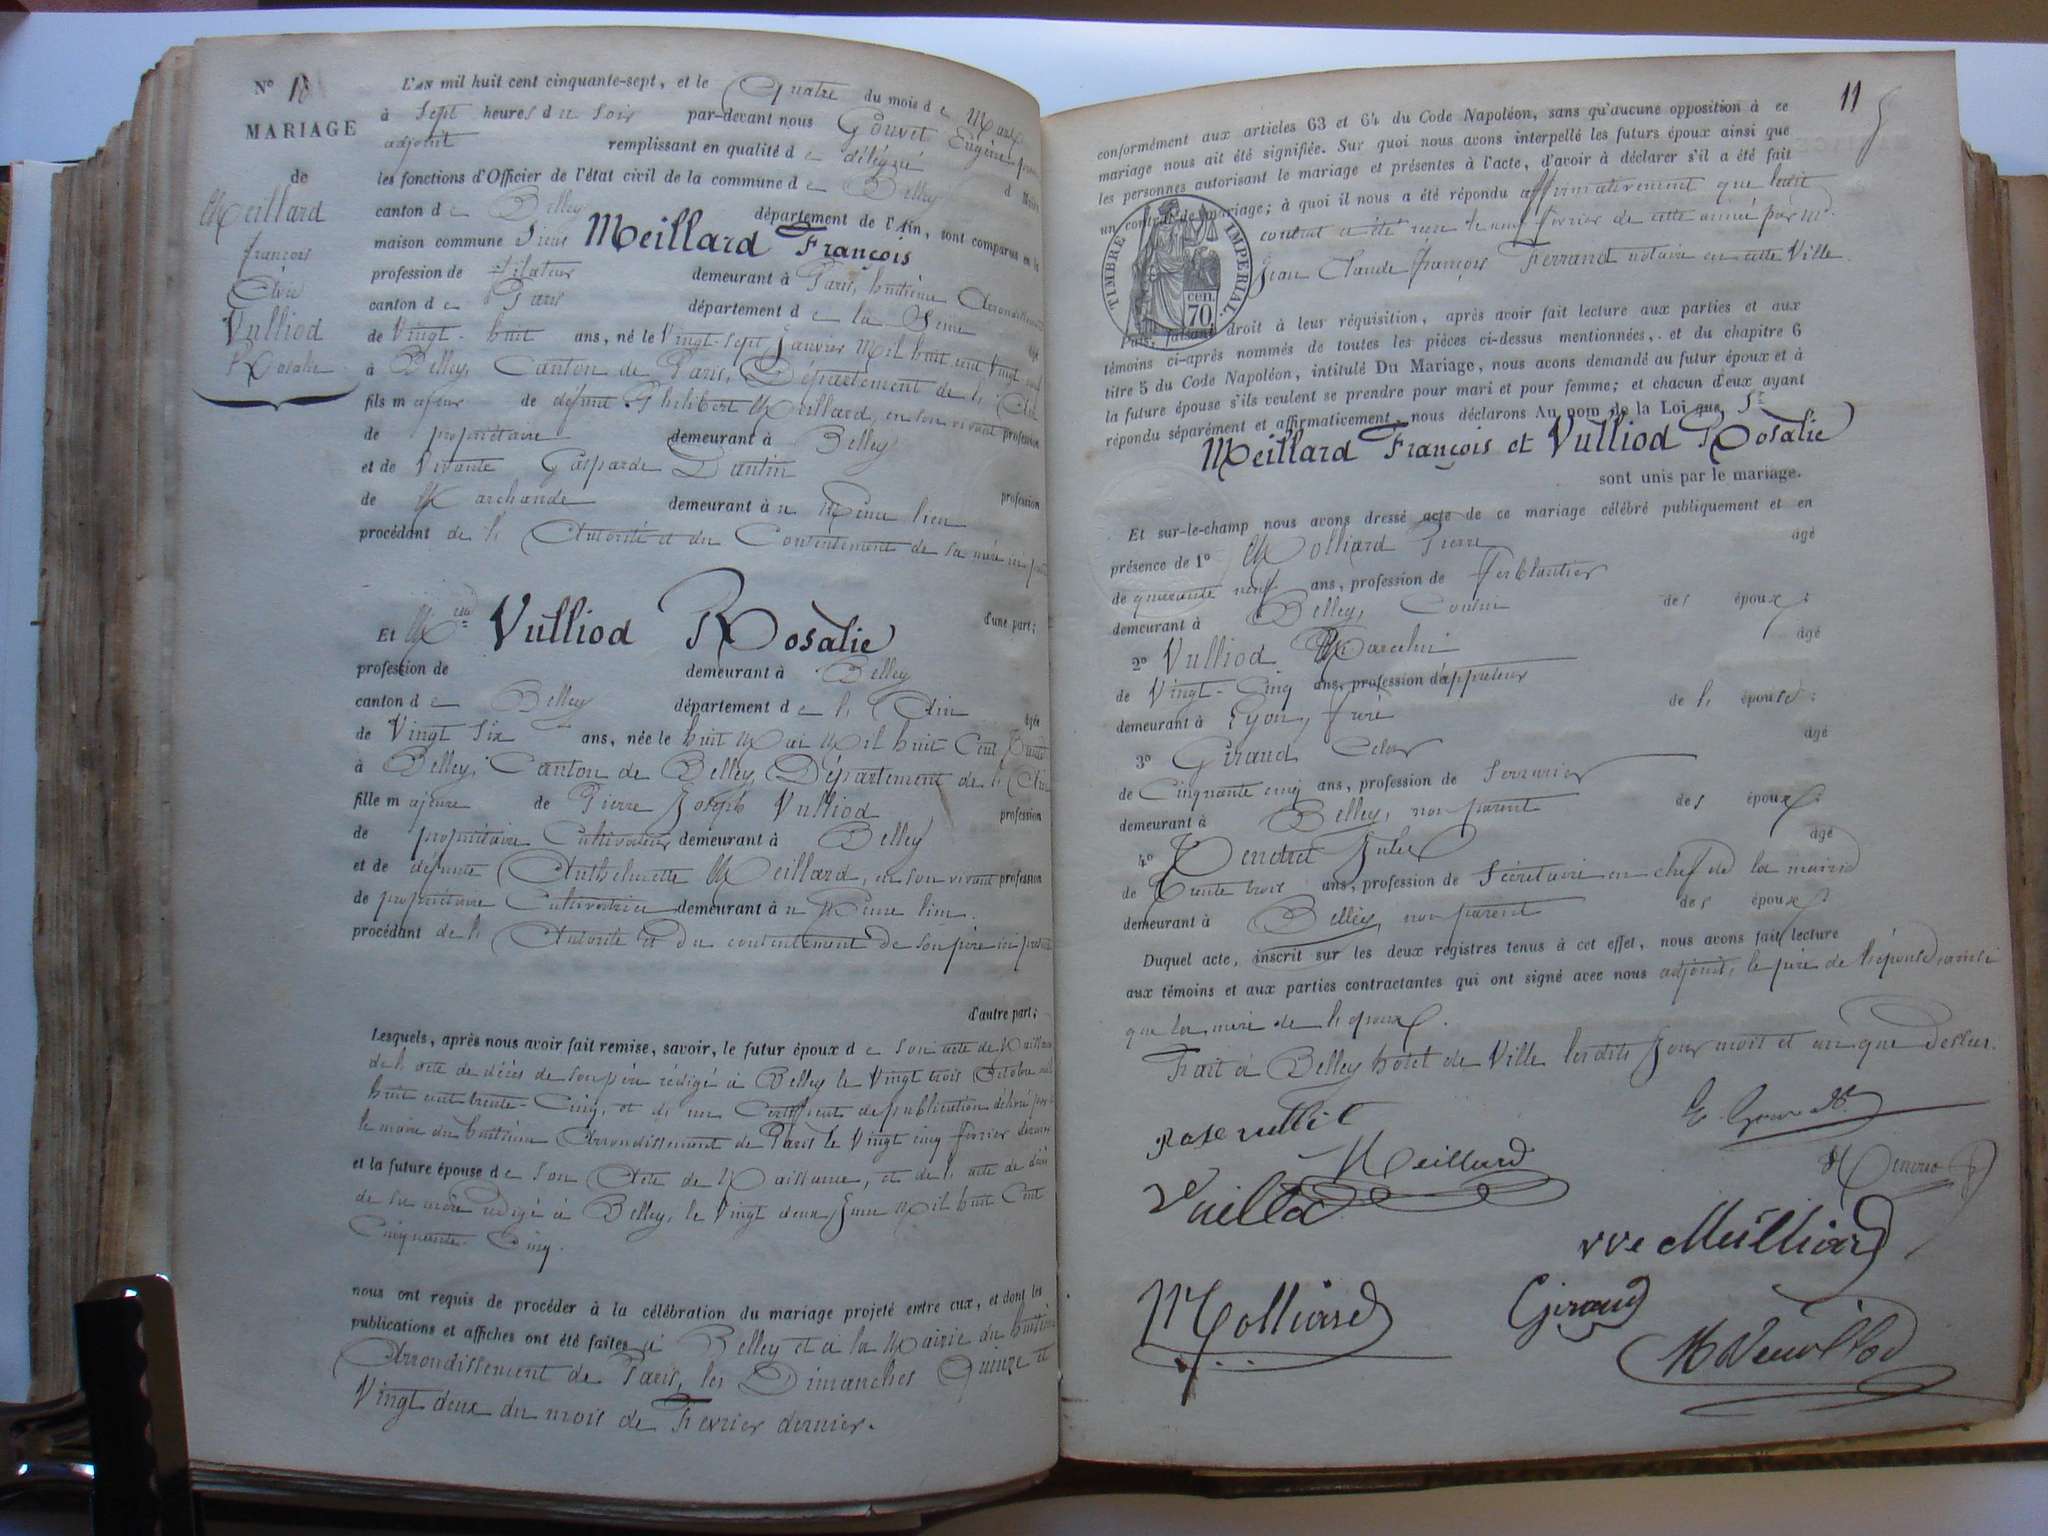 N° 10
MARIAGE
de
Meillard
françois
Et
Vulliod
Rosalie
L'AN mil huit cent cinquante-sept, et le Quatre du mois de Mars
à Sept heures du soir par-devant nous Gouvet Eugène
adjoint remplissant en qualité de délégué d Maire
les fonctions d'Officier de l'état civil de la commune de Belley
canton de Belley département de l'Ain, sont comparus en la
maison commune Sieur Meillard François
profession de demeurant à Paris, huitième Arrondissement
canton de Paris département de la Seine âgé
de Vingt-huit ans, né le Vingt-sept Janvier Mil huit cent Vingt
à Belley, Canton de Paris, Département de l'Ain
fils majeur de défunt Philibert Meillard, en son vivant profession
de propriétaire demeurant à Belley
et de Vivante Gasparde Dantin
de Marchande demeurant au Même lieu profession
procédant de l'Autorité et du Consentement de sa mère ici
d'une part;
Et Vulliod Rosalie
profession de demeurant à Belley
canton de Belley département de l'Ain âgée
de Vingt Six ans, née le huit Mai Mil huit Cent Trente
à Belley, Canton de Belley, Département de l'Ain
fille majeure de Pierre Joseph Vulliod profession
de propriétaire Cultivateur demeurant à Belley
et de défunte Anthelmette Meillard, en son vivant profession
de propriétaire Cultivatrice demeurant au Même lieu.
procédant de l'Autorité et du consentement de son père ici présent
d'autre part;
Lesquels, après nous avoir fait remise, savoir, le futur époux de son acte de Naissance
de l'acte de décès de son père rédigé à Belley le Vingt trois Octobre mil
huit cent trente-Cinq, et d'un Certificat de publication délivré par
le maire du huitième Arrondissement de Paris le Vingt cinq février dernier
et la future épouse de son Acte de Naissance, et de l'acte de décès
de sa mère rédigé à Belley, le Vingt deux Juin Mil huit Cent
Cinquante-Cinq.
nous ont requis de procéder à la célébration du mariage projeté entre eux, et dont les
publications et affiches ont été faites à Belley et à la Mairie du huitième
Arrondissement de Paris, les Dimanches Quinze et
Vingt deux du mois de Février dernier.
11
conformément aux articles 63 et 64 du Code Napoléon, sans qu'aucune opposition à ce
mariage nous ait été signifiée. Sur quoi nous avons interpellé les futurs époux ainsi que
les personnes autorisant le mariage et présentes à l'acte, d'avoir à déclarer s'il a été fait
un contrat de mariage; à quoi il nous a été répondu affirmativement que ledit
contrat a été reçu le neuf février de cette année par Me
Jean Claude françois Ferrand notaire en cette Ville.
TIMBRE IMPÉRIAL
70 cen.
Puis, faisant droit à leur réquisition, après avoir fait lecture aux parties et aux
témoins ci-après nommés de toutes les pièces ci-dessus mentionnées, et du chapitre 6
titre 5 du Code Napoléon, intitulé Du Mariage, nous avons demandé au futur époux et à
la future épouse s'ils veulent se prendre pour mari et pour femme; et chacun d'eux ayant
répondu séparément et affirmativement, nous déclarons Au nom de la Loi que Sr
Meillard François et Vulliod Rosalie
sont unis par le mariage.
Et sur-le-champ nous avons dressé acte de ce mariage célébré publiquement et en
présence de 1° Molliard Pierre âgé
de quarante neuf ans, profession de ferblantier
demeurant à Belley, Cousin des époux;
2° Vulliod Marcelin âgé
de Vingt-Cinq ans, profession d'apprêteur
demeurant à Lyon, frère de l'épouse;
3° Giraud âgé
de Cinquante cinq ans, profession de Serrurier
demeurant à Belley, non parent des époux;
4° Tendret Jules âgé
de Trente trois ans, profession de Secrétaire en chef de la mairie
demeurant à Belley, non parent des époux;
Duquel acte, inscrit sur les deux registres tenus à cet effet, nous avons fait lecture
aux témoins et aux parties contractantes qui ont signé avec nous adjoint, le père de l'épouse, ainsi
que la mère de l'époux.
Fait à Belley hôtel de Ville lesdits Jour mois et an que dessus.
E. Gouvet
Meillard
vve Meilliard
Molliard
Giraud